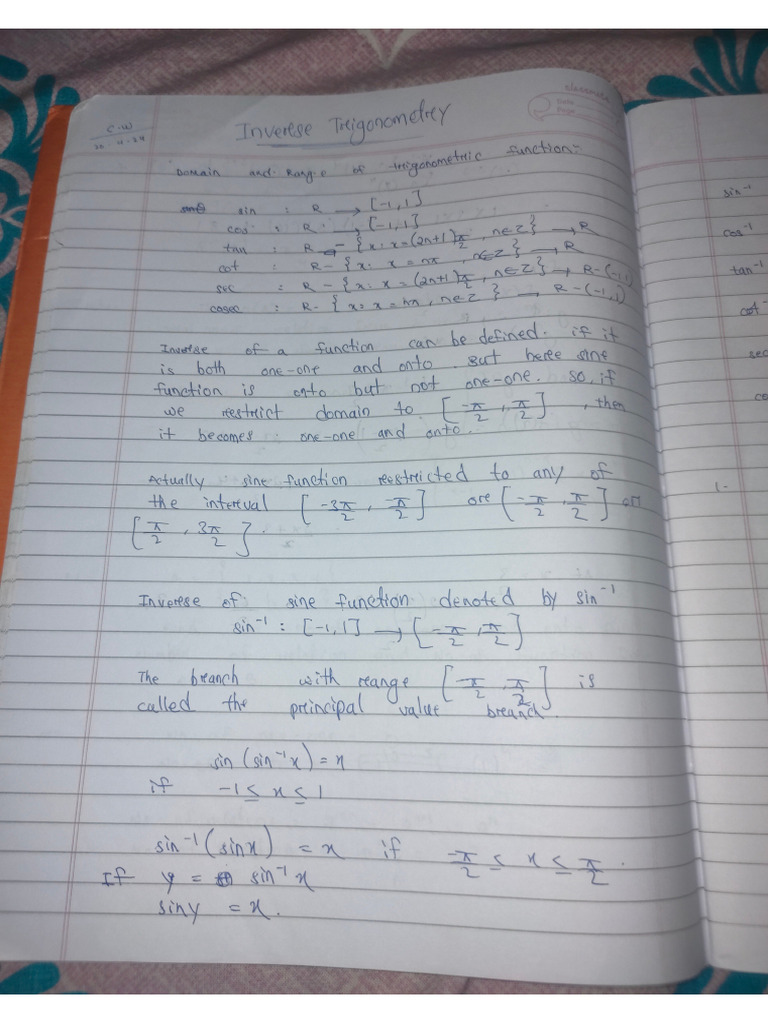 C.W
Inverse Trigonometry
classmate
Date
Page
Domain and Range of trigonometric function:-
sin : R → [-1, 1]
cos : R → [-1, 1]
tan : R - {x : x = (2n+1)π/2, n∈Z} → R
cot : R - {x : x = nπ, n∈Z} → R
sec : R - {x : x = (2n+1)π/2, n∈Z} → R-(-1,1)
cosec : R- {x : x = nπ, n∈Z} → R-(-1,1)
Inverse of a function can be defined. if it
is both one-one and onto. But here sine
function is onto but not one-one. so, if
we restrict domain to [-π/2, π/2], then
it becomes one-one and onto.
Actually sine function restricted to any of
the interval [-3π/2, -π/2] or [-π/2, π/2] or
[π/2, 3π/2].
Inverse of sine function denoted by sin⁻¹
sin⁻¹ : [-1, 1] → [-π/2, π/2]
The branch with range [-π/2, π/2] is
called the principal value branch.
sin(sin⁻¹x) = x
if -1 ≤ x ≤ 1
sin⁻¹(sinx) = x if -π/2 ≤ x ≤ π/2.
If y = sin⁻¹x
siny = x.
sin⁻¹
cos⁻¹
tan⁻¹
cot⁻
sec
co
1-